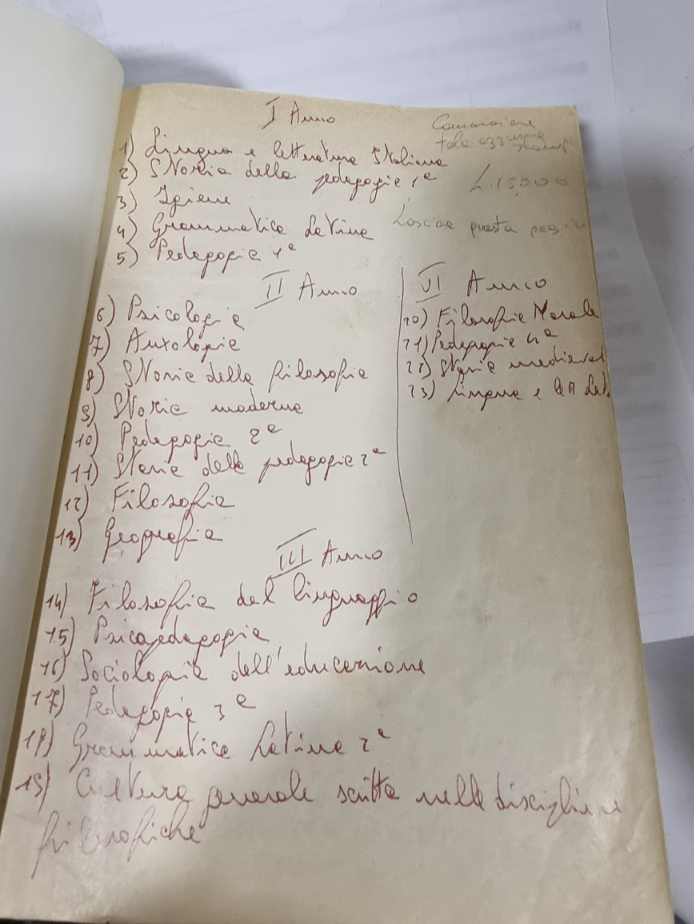 I Anno
1) Lingua e letteratura Italiana
2) Storia della pedagogia 1ª
3) Igiene
4) Grammatica Latina
5) Pedagogia 1ª
L. 15000
Lasciare questa
II Anno
6) Psicologia
7) Auxologia
8) Storia della filosofia
9) Storia moderna
10) Pedagogia 2ª
11) Storia della pedagogia 2ª
12) Filosofia
13) Geografia
VI Anno
20) Filosofia Morale
21) Pedagogia 4ª
22) Storia medieval
23) Lingua e Lat.
III Anno
14) Filosofia del linguaggio
15) Psicopedagogia
16) Sociologia dell'educazione
17) Pedagogia 3ª
18) Grammatica Latina 2ª
19) Cultura generale scritta nelle discipline
filosofiche